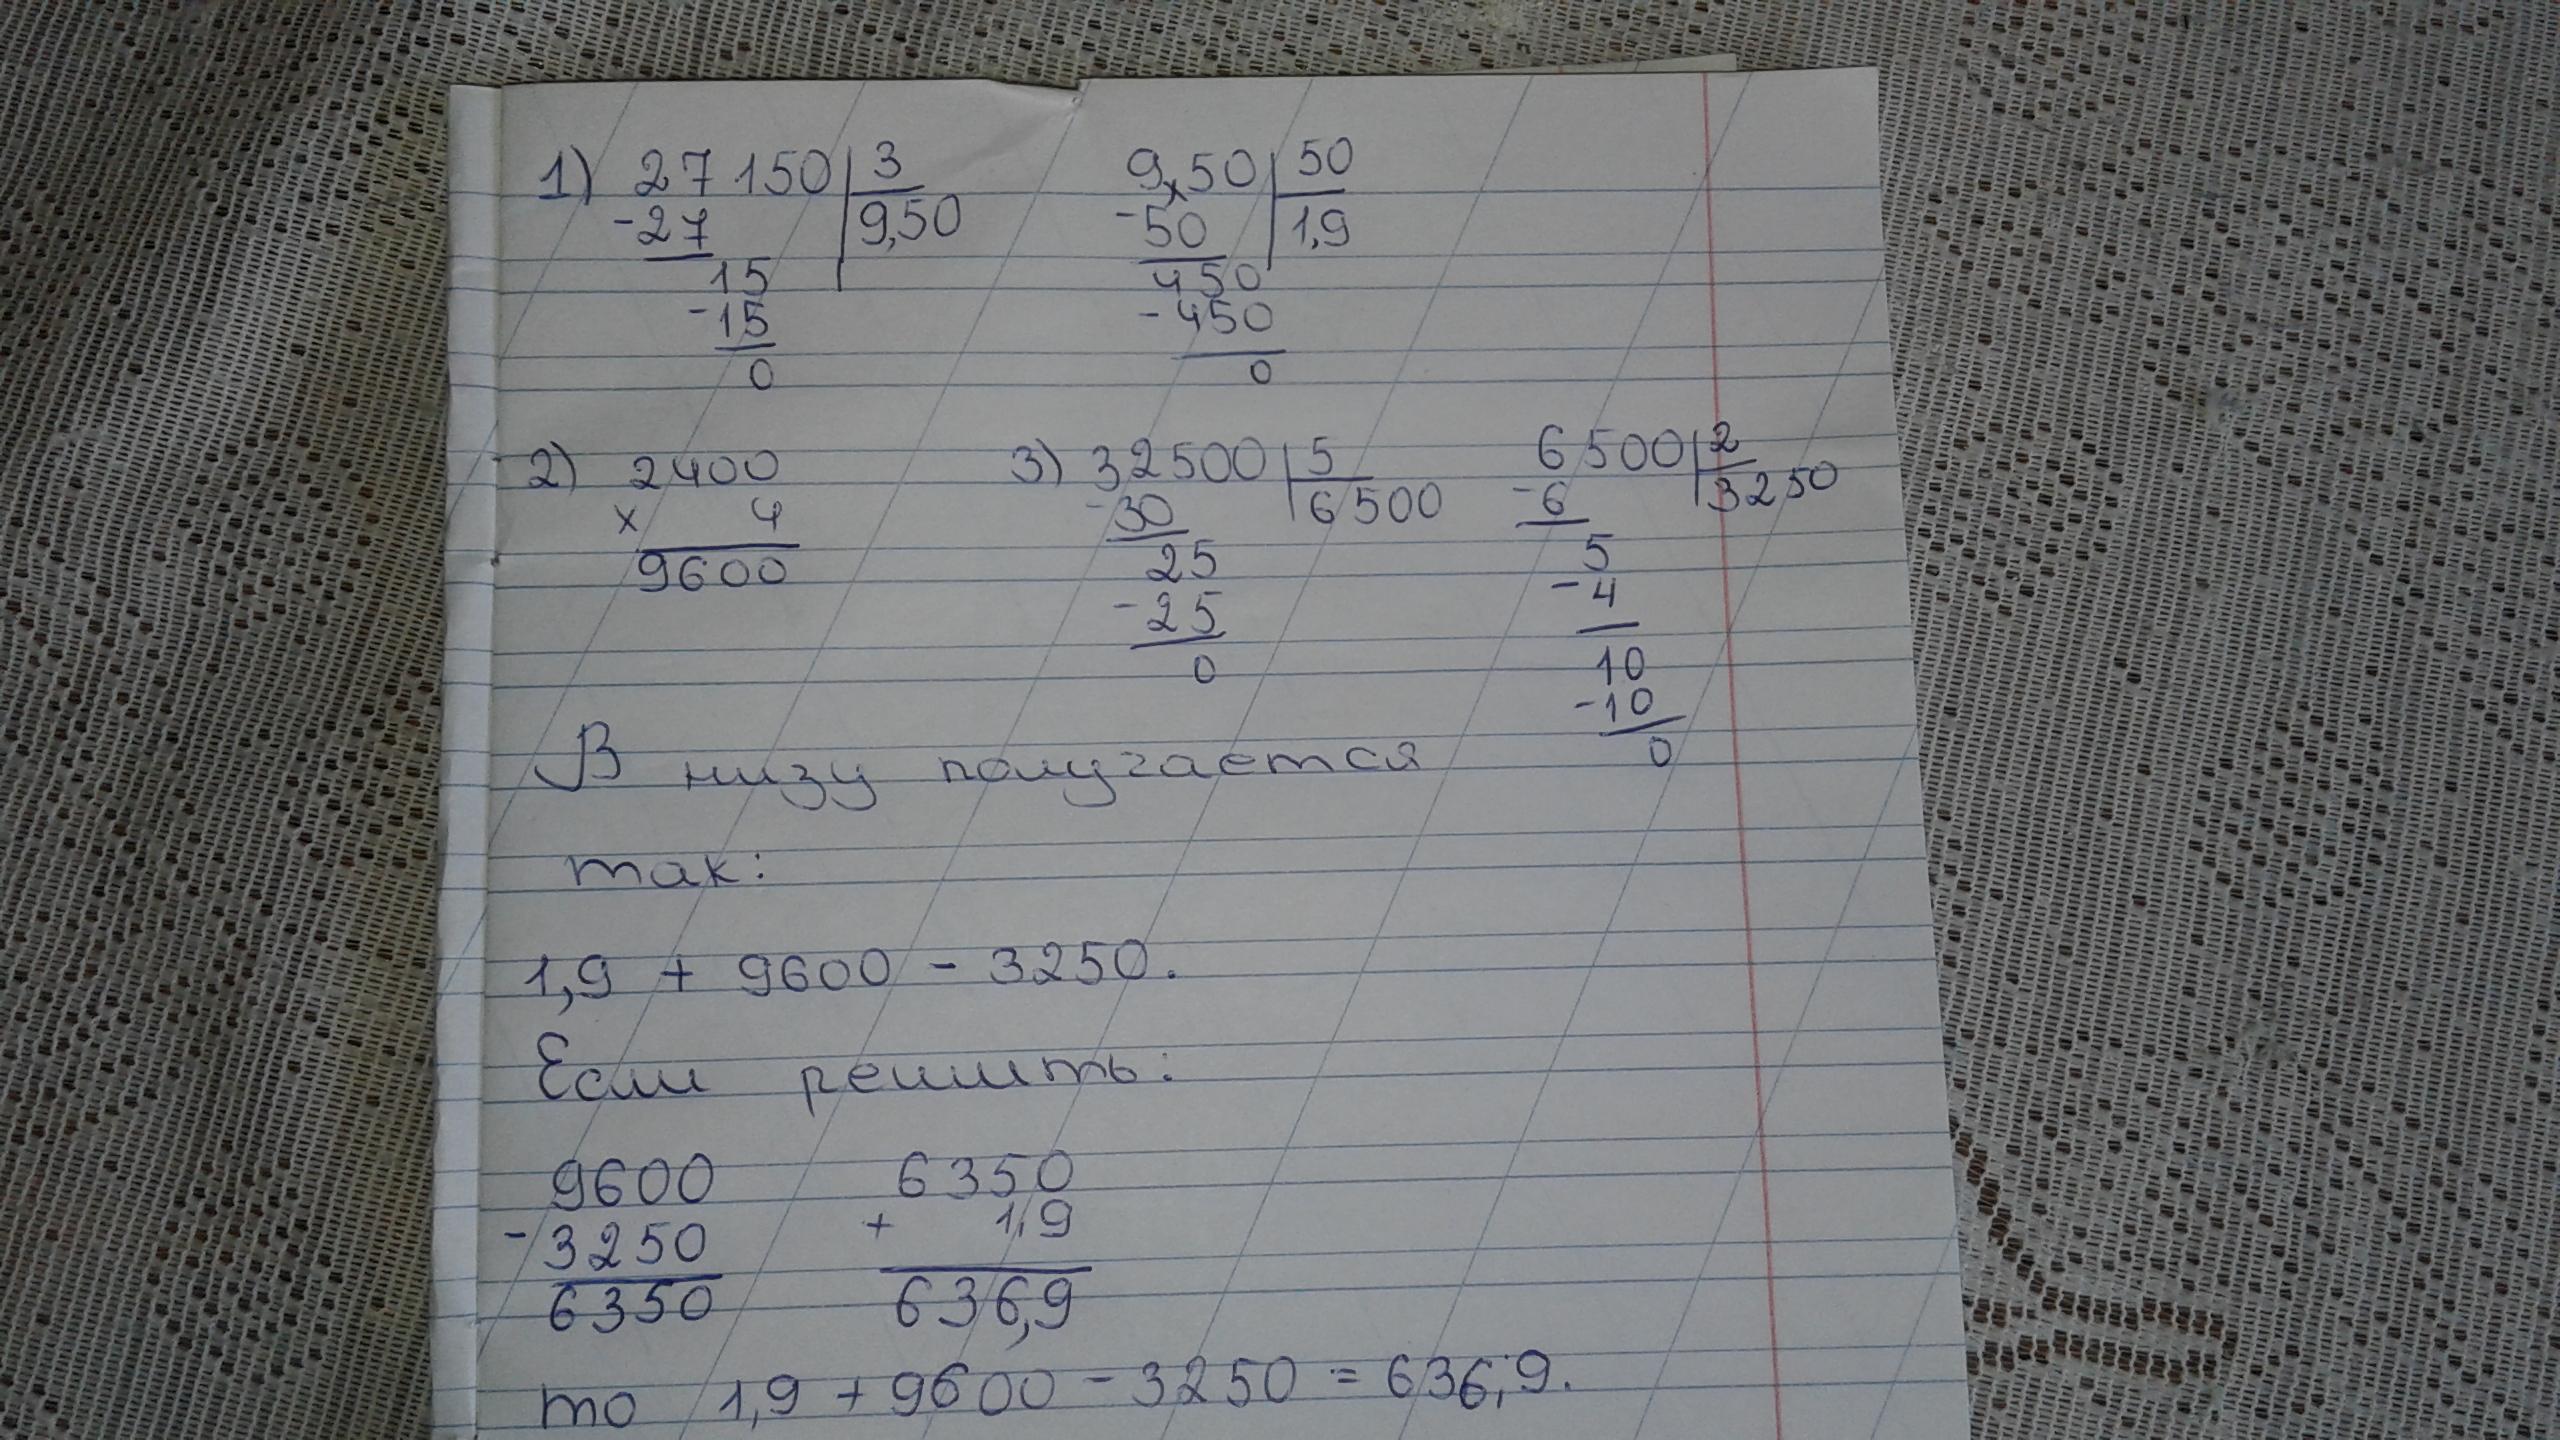 1) 27 150 | 3 9,50 | 50
- 27 9,50 - 50 1,9
15 450
- 15 - 450
0 0
2) 2400 3) 32500 | 5 6500 | 2
x 4 - 30 6500 - 6 3250
9600 25 5
- 25 - 4
0 10
- 10
0
В низу получается
так:
1,9 + 9600 - 3250.
Если решить:
9600 6350
- 3250 + 1,9
6350 636,9
то 1,9 + 9600 - 3250 = 636,9.